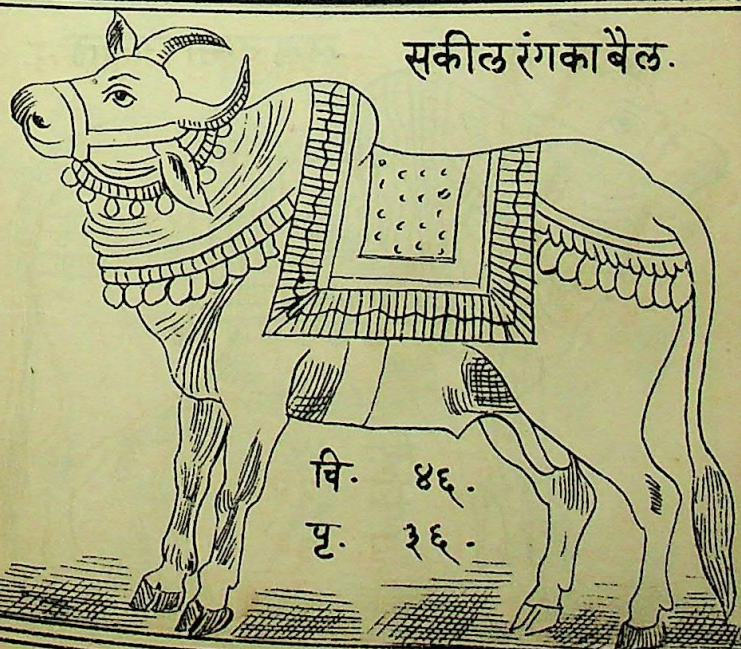 सकील रंगका बैल.
चि. ४६.
पृ. ३६.